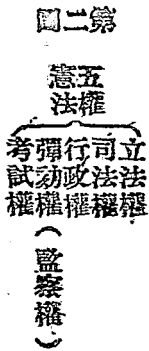 第二圖
五權憲法
立法權
司法權
行政權
彈劾權(監察權)
考試權